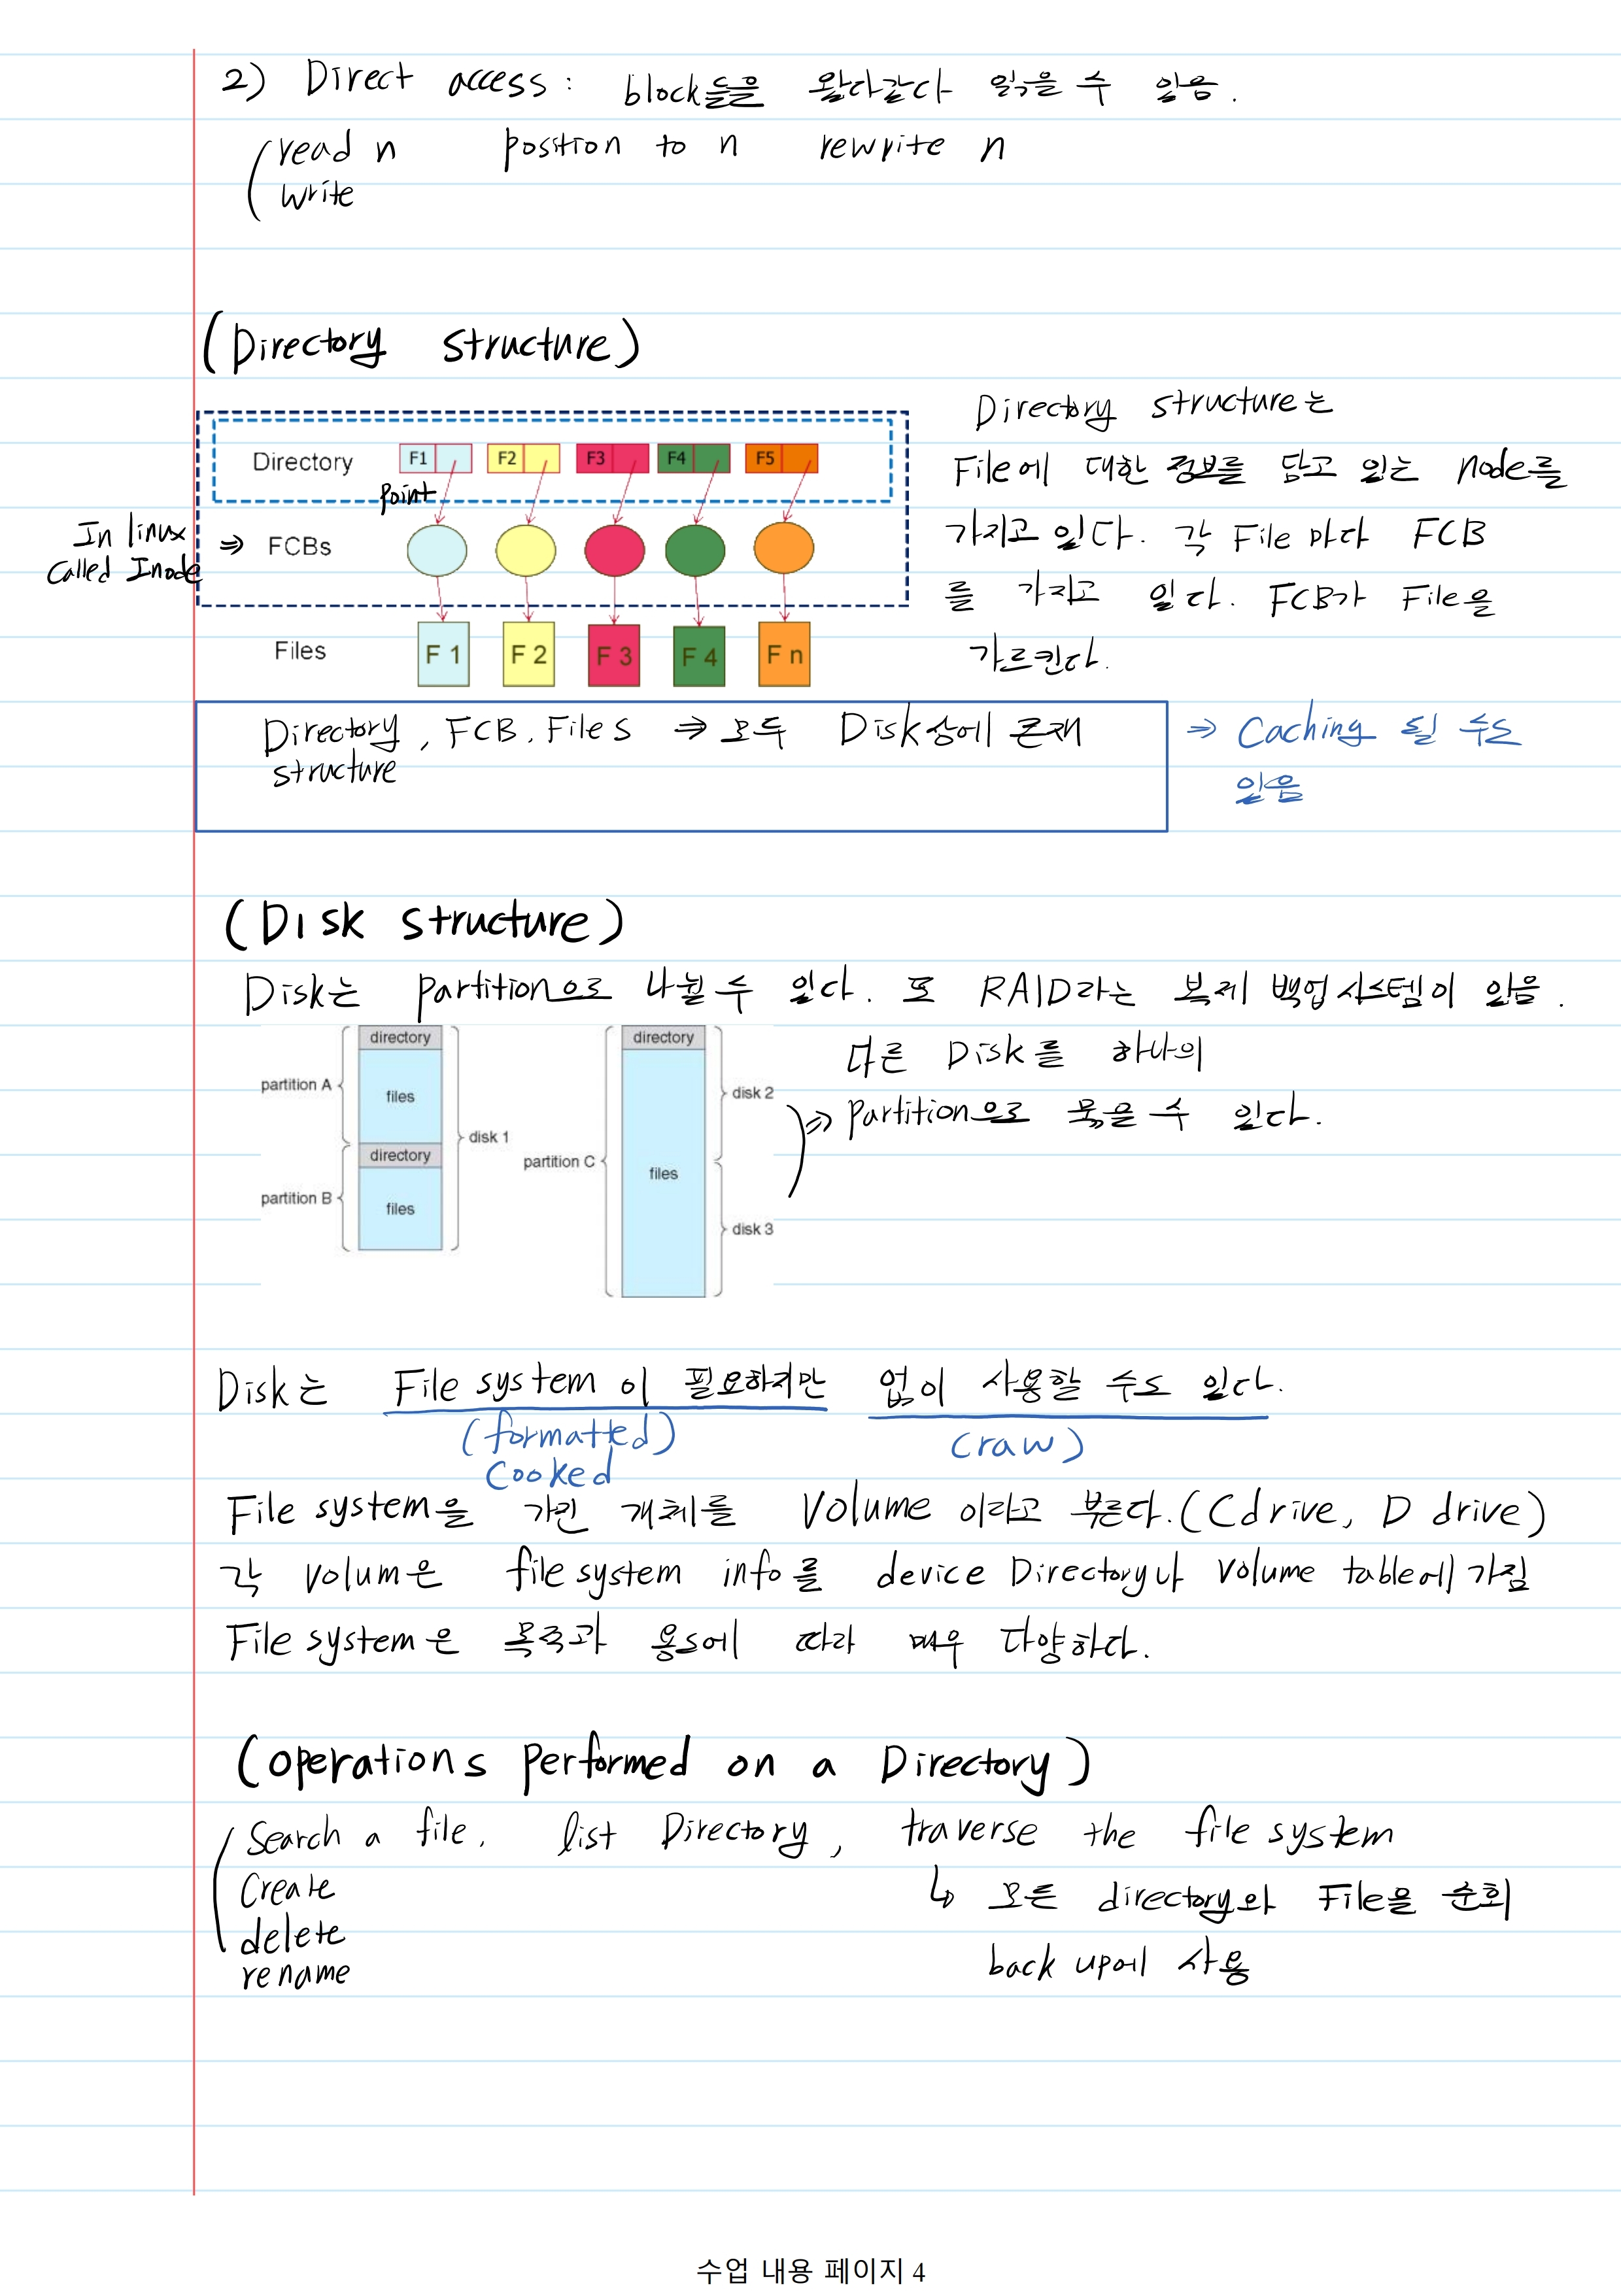 2) Direct access : block들을 왔다갔다 읽을 수 있음.
read n position to n rewrite n
write
(Directory structure)
Directory structure는
File에 대한 정보를 담고 있는 node를
가지고 있다. 각 File 마다 FCB
를 가지고 있다. FCB가 File을
가르킨다.
Directory F1 F2 F3 F4 F5
point
In linux
called Inode
⇒ FCBs
Files F 1 F 2 F 3 F 4 F n
Directory, FCB, Files ⇒ 모두 Disk상에 존재
structure
⇒ Caching 될 수도
있음
(Disk structure)
Disk는 partition으로 나뉠 수 있다. 또 RAID라는 복제 백업시스템이 있음.
partition A directory files
partition B directory files
disk 1
partition C directory files
disk 2
disk 3
다른 Disk를 하나의
⇒ partition으로 묶을 수 있다.
Disk는 File system이 필요하지만 없이 사용할 수도 있다.
(formatted) (raw)
cooked
File system을 가진 개체를 Volume 이라고 부른다.(C drive, D drive)
각 volum은 file system info를 device Directory나 volume table에 가짐
File system은 목적과 용도에 따라 매우 다양하다.
(operations performed on a Directory)
Search a file, list Directory, traverse the file system
Create
delete
rename
↳ 모든 directory와 File을 순회
back up에 사용
수업 내용 페이지 4